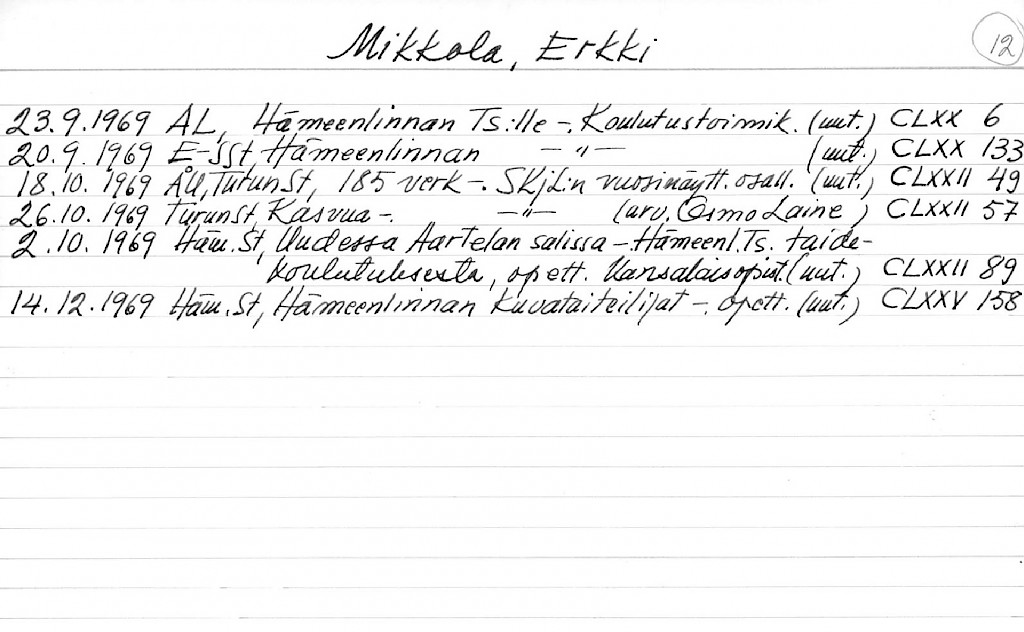 Mikkola, Erkki 12
23.9.1969 AL, Hämeenlinnan Ts:lle -. Koulutustoimik. (uut.) CLXX 6
20.9.1969 E-SSt, Hämeenlinnan —"— (uut.) CLXX 133
18.10.1969 ÅU, TurunSt, 185 verk -. SKjL:n vuosinäytt. osall. (uut.) CLXXII 49
26.10.1969 TurunSt, Kasvua -. —"— (arv. Osmo Laine) CLXXII 57
2.10.1969 Häm.St, Uudessa Aartelan salissa - Hämeenl.Ts. taide-
koulutuksesta, opett. Kansalaisopist. (uut.) CLXXII 89
14.12.1969 Häm.St, Hämeenlinnan Kuvataiteilijat -. opett. (uut.) CLXXV 158